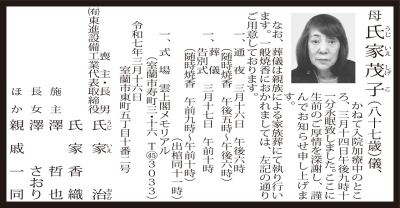 母 氏家茂子(八十七歳)儀、
うじ いえ しげ こ
かねて入院加療中のとこ
ろ、三月十四日午後九時十
一分永眠致しました。ここに
生前のご厚情を深謝し、謹
んでお知らせ申し上げま
す。
なお、葬儀は親族による家族葬にて執り行い
ます。一般焼香におかれましては、左記の通り
ご用意しております。
一、通夜 三月十六日 午後六時
(随時焼香 午後五時〜午後六時)
一、葬儀
告別式 三月十七日 午前十時
(随時焼香 午前九時〜午前十時)
(出棺同十一時)
一、式場 雲上閣メモリアル
(室蘭市寿町三ー十六 T㊺3033)
令和七年三月十六日
室蘭市東町五丁目十番二号
㈲東進設備工業代表取締役
喪主・長男 氏家 治
氏家 香織
施主 澤 哲也
長女 澤 さおり
ほか親戚一同